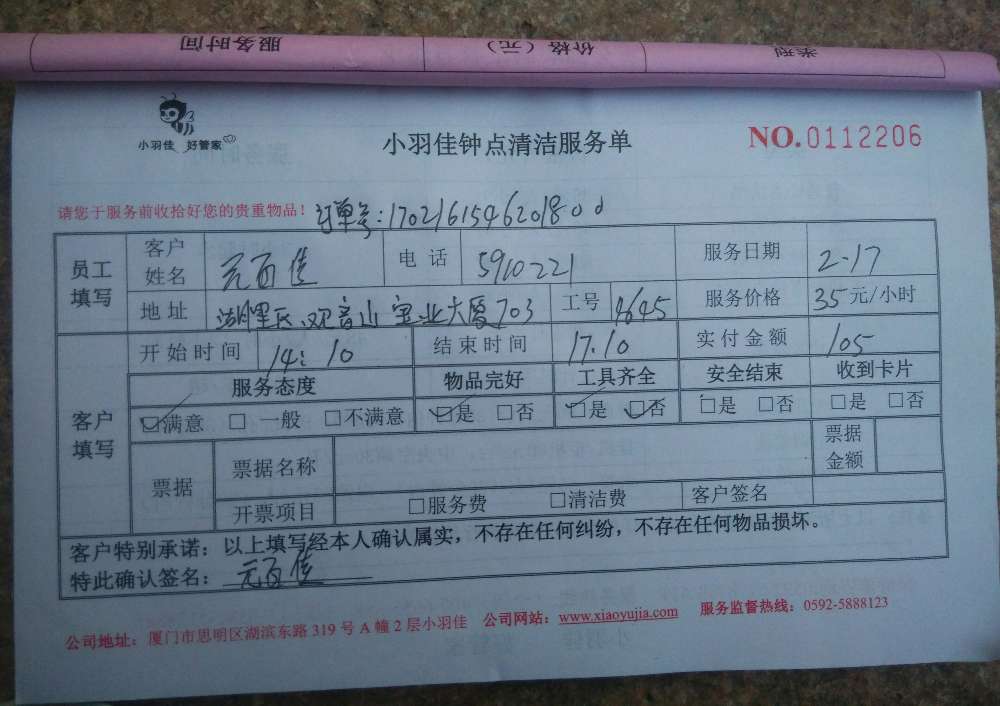 服务时间 价格（元） 类型
小羽佳 好管家
小羽佳钟点清洁服务单
NO.0112206
请您于服务前收拾好您的贵重物品！ 订单号：
员工填写 客户姓名 元百佳 电话 5910221 服务日期 2-17
地址 湖里区观音山宝业大厦703 工号 4645 服务价格 35元/小时
客户填写 开始时间 14：10 结束时间 17.10 实付金额 105
服务态度 物品完好 工具齐全 安全结束 收到卡片
☑满意 □ 一般 □不满意 ☑是 □否 ☑是 ☑否 □是 □否 □是 □否
票据 票据名称 票据金额
开票项目 □服务费 □清洁费 客户签名
客户特别承诺：以上填写经本人确认属实，不存在任何纠纷，不存在任何物品损坏。
特此确认签名：元百佳
公司地址：厦门市思明区湖滨东路 319 号 A 幢 2 层小羽佳 公司网站：www.xiaoyujia.com 服务监督热线：0592-5888123